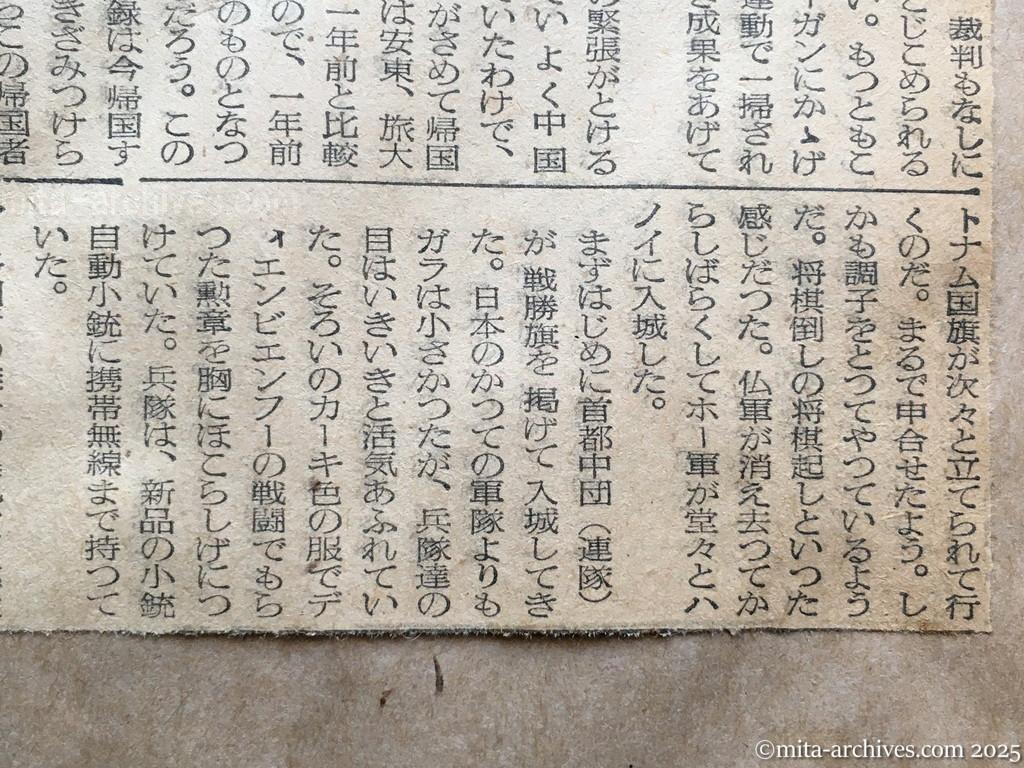 裁判もなしに
とじこめられる
い。もつともこ
ーガンにかゝげ
運動で一掃され
き成果をあげて
の緊張がとける
いよく中国
いたわけで、
がさめて帰国
は安東、旅大
一年前と比較
ので、一年前
のものとなつ
だろう。この
録は今帰国す
きざみつけら
つこの帰国者
トナム国旗が次々と立てられて行
くのだ。まるで申合せたよう。し
かも調子をとつてやつているよう
だ。将棋倒しの将棋起しといつた
感じだつた。仏軍が消え去つてか
らしばらくしてホー軍が堂々とハ
ノイに入城した。
まずはじめに首都中団（連隊）
が戦勝旗を掲げて入城してき
た。日本のかつての軍隊よりも
ガラは小さかつたが、兵隊達の
目はいきいきと活気あふれてい
た。そろいのカーキ色の服でデ
ィエンビエンフーの戦闘でもら
つた勲章を胸にほこらしげにつ
けていた。兵隊は、新品の小銃
自動小銃に携帯無線まで持つて
いた。
mita-archives.com
©mita-archives.com 2025